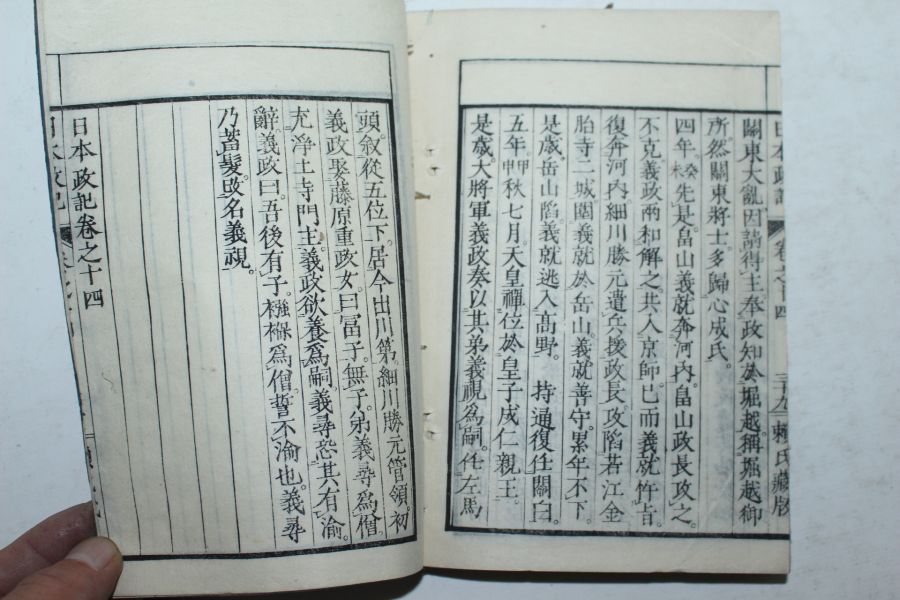 日本政記 卷之十四 三十九 賴氏藏版
關東大亂因請得主奉政知於堀越稱堀越御
所。然關東將士多歸心成氏。
四年。癸未先是畠山義就奔河内。畠山政長攻之。
不克義政兩和解之。共入京師。已而義就忤旨。
復奔河内細川勝元遣兵援政長攻陷若江金
胎寺二城圍義就於岳山。義就善守。累年不下。
是歲岳山陷。義就逃入高野。 持通復任關白。
五年。甲申秋七月。天皇禪位於皇子成仁親王。
是歲。大將軍義政奏以其弟義視爲嗣。任左馬
頭。敘從五位下。居今出川第。細川勝元管領。初
義政娶藤原重政女。曰冨子。無子。弟義尋爲僧。
充淨土寺門主。義政欲養爲嗣義尋恐其有渝。
辭。義政曰。吾後有子。襁褓爲僧。誓不渝也。義尋
乃蓄髮。改名義視。
日本政記卷之十四